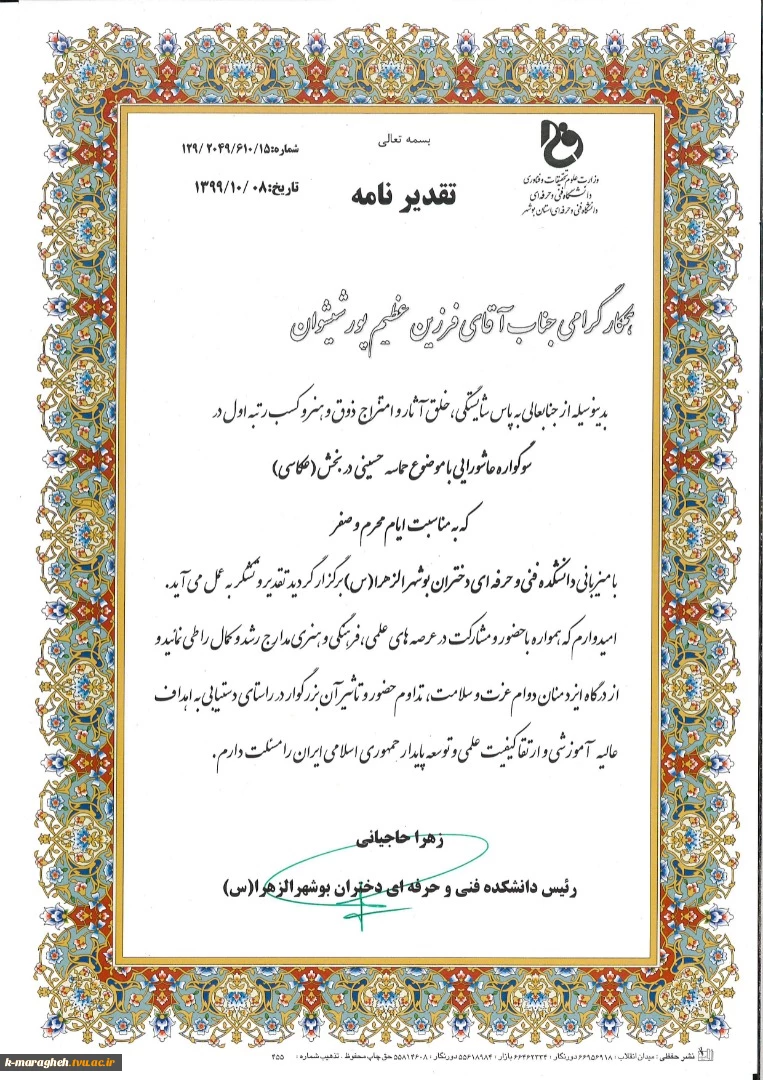 بسمه تعالی
شماره:۱۲۹/۲۰۴۹/۶۱۰/۱۵
تقدیر نامه
تاریخ:۱۳۹۹/۱۰/۰۸
وزارت علوم تحقیقات و فناوری
دانشگاه فنی و حرفه ای
دانشگاه فنی و حرفه ای استان بوشهر
همکار گرامی جناب آقای فرزین عظیم پور شیشوان
بدینوسیله از جنابعالی به پاس شایستگی، خلق آثار و امتزاج ذوق و هنر و کسب رتبه اول در
سوگواره عاشورایی با موضوع حماسه حسینی در بخش (عکاسی)
که به مناسبت ایام محرم و صفر
با میزبانی دانشکده فنی و حرفه ای دختران بوشهر الزهرا(س) برگزار گردید تقدیر و تشکر به عمل می آید.
امیدوارم که همواره با حضور و مشارکت در عرصه های علمی، فرهنگی و هنری مدارج رشد و کمال را طی نمائید و
از درگاه ایزد منان دوام عزت و سلامت، تداوم حضور و تاثیر آن بزرگوار در راستای دستیابی به اهداف
عالیه آموزشی و ارتقا کیفیت علمی و توسعه پایدار جمهوری اسلامی ایران را مسئلت دارم.
زهرا حاجیانی
رئیس دانشکده فنی و حرفه ای دختران بوشهر الزهرا(س)
نشر حفظی: میدان انقلاب: ۶۶۹۵۶۹۱۸ دورنگار: ۶۶۴۶۲۳۳۴ بازار: ۵۵۶۱۸۹۸۴ دورنگار: ۵۵۸۱۴۶۰۸ حق چاپ محفوظ . تذهیب شماره: ۴۵۵
k-maragheh.tvu.ac.ir